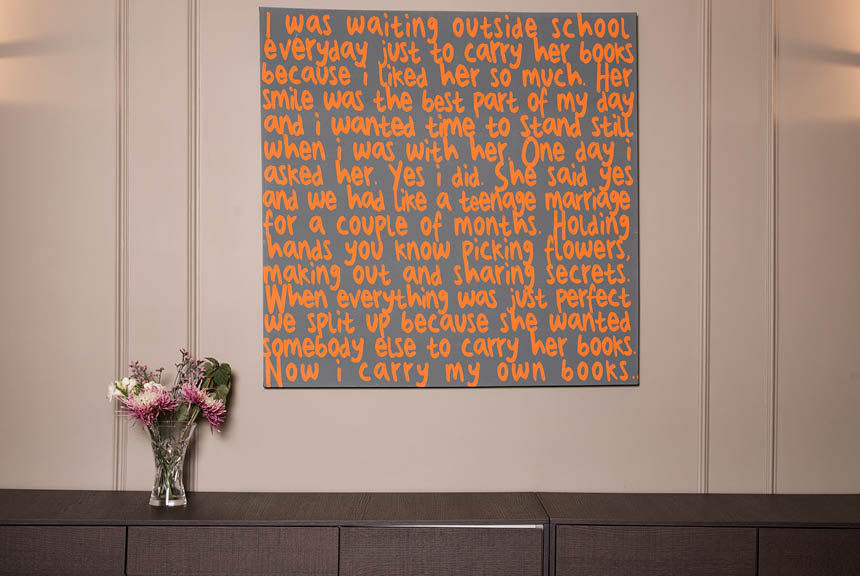 I was waiting outside school
everyday just to carry her books
because i liked her so much. Her
smile was the best part of my day
and i wanted time to stand still
when i was with her. One day i
asked her. Yes i did. She said yes
and we had like a teenage marriage
for a couple of months. Holding
hands you know picking flowers,
making out and sharing secrets.
When everything was just perfect
we split up because she wanted
somebody else to carry her books.
Now i carry my own books..